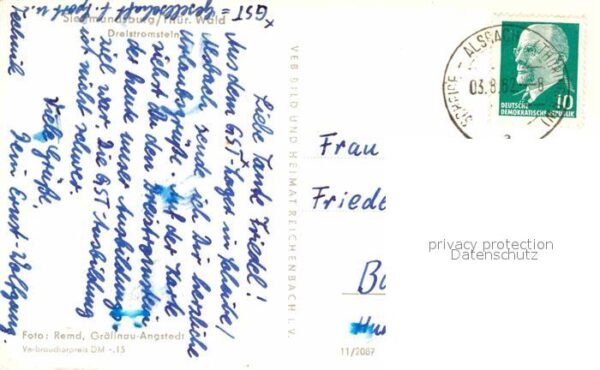 Siegmundsburg/Thür. Wald
Dreistromstein
x GST =
Gesellschaft f. Sport u.
Technik
Liebe Tante Friedel!
Aus dem GST-Lager in
sende ich Dir herzliche
Urlaubsgrüße. Auf der Karte
siehst Du den Dreistromstein,
der heute unser Ausbildungs-
ziel war. Die GST-Ausbildung
ist nicht schwer.
Viele Grüße,
Dein Ernst-Wolfgang.
Foto: Remd, Gräfinau-Angstedt
Verbraucherpreis DM -.15
VEB BILD UND HEIMAT REICHENBACH i. V.
11/2087
SCHEIBE - ALSBACH
03.8.62
DEUTSCHE
DEMOKRATISCHE REPUBLIK
10
Frau
Friede
privacy protection
Datenschutz